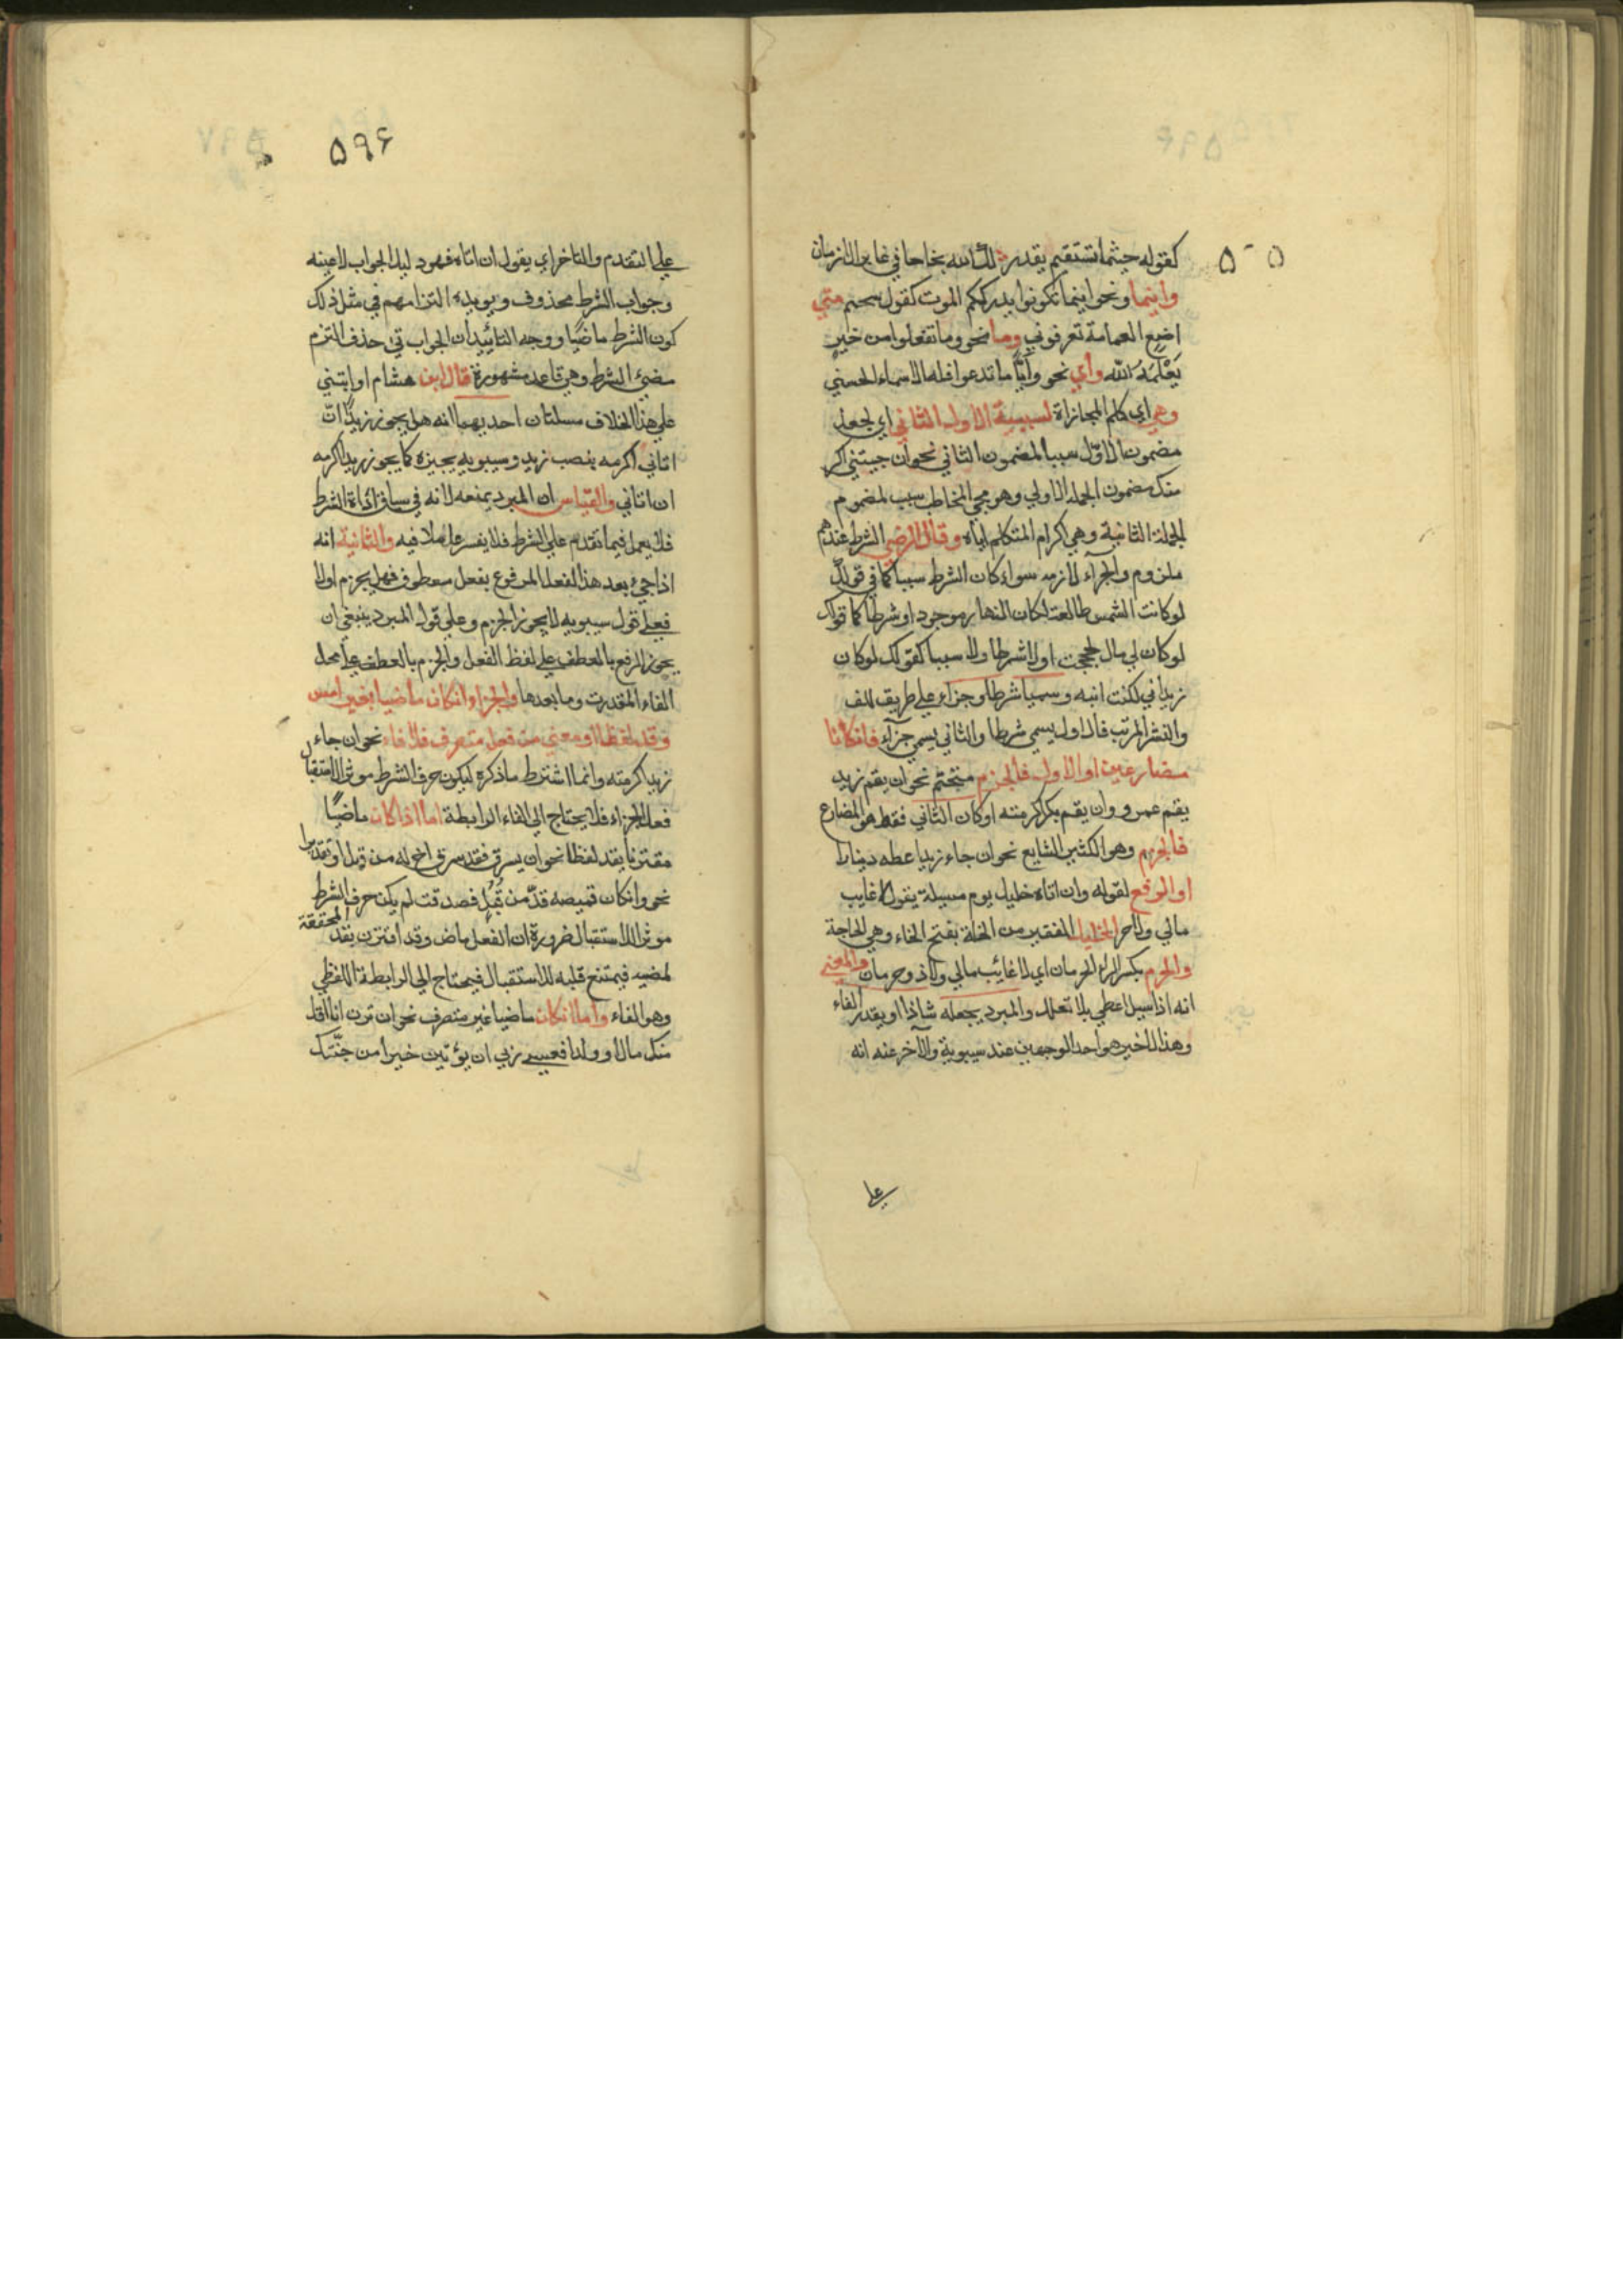 ۵۹۶
۵-۵
كقوله حيثما تستقم يقدر لك الله نجاحا في غابر الازمان
واينما ونحو اينما تكونوا يدرككم الموت كقول سحيم متي
اضع العمامة تعرفوني وما نحو وما تفعلوا من خير
يَعْلَمْهُ اللّه وأي نحو وأيًّا ما تدعوا فله الاسماء الحسني
وهي اي كلم المجازاة لسببية الاول الثاني اي لجعل
مضمون الاوّل سببا لمضمون الثاني نحو ان جيتني اكر
متك مضمون الجملة الاولي وهو مجي المخاطب سبب لمضموم
الجملة الثانية وهي اكرام المتكلم اياه وقال الرضي الشرط عندهم
ملزوم والجزآء لازمه سواء كان الشرط سببا كما في قولك
لو كانت الشمس طالعة لكان النهار موجود او شرطا كما قولك
لو كان لي مال لحججت اولا شرطا ولا سببا كقولك لو كان
زيد ابي لكنت ابنه وسميا شرطا وجزاء علي طريق اللف
والنشر المرتب فالاول يسمي شرطا والثاني يسمي جزآء فان كانا
مضارعين او الاول فالجزم متحتم نحو ان يقم زيد
يقم عمرو وان يقم بكر اكرمته او كان الثاني فقط هو المضارع
فالجزم وهو الكثير الشايع نحو ان جاء زيد اعطه دينارا
او الرفع لقوله وان اتاه خليل يوم مسيلة يقول لا غايب
مالي ولا حرم الخليل الفقير من الخلة بفتح الخاء وهي الحاجة
والحرم بكسر الراء الحرمان اي لا غائب مالي ولا ذو حرمان والمعني
انه اذا سيل اعطي بلا تعلل والمبرد يجعله شاذا او يقدر الفاء
وهذا الاخير هو احد الوجهين عند سيبوية والآخر عنه انه
علي
علي التقدم والتاخر اي يقول ان اتاه فهو دليل الجواب لا عينه
وجواب الشرط محذوف ويويده التزامهم في مثل ذلك
كون الشرط ماضيًا ووجه التائيد ان الجواب متي حذف التزم
مضيّ الشرط وهي قاعدة مشهورة قال ابن هشام او ابتني
علي هذا الخلاف مسلتان احديهما انه هل يجوز زيدًا ان
اتاني اكرمه بنصب زيد وسيبويه يجيزه كما يجوز زيدا اكرمه
ان اتاني والقياس ان المبرد يمنعه لانه في سياق اداة الشرط
فلا يعمل فيما تقدم علي الشرط فلا يفسر عاملا فيه والثانية انه
اذا جيء بعد هذا الفعل المرفوع بفعل معطوف فهل يجزم اولا
فعلي قول سيبويه لا يجوز الجزم وعلي قول المبرد ينبغي ان
يجوز الرفع بالعطف علي لفظ الفعل والجزم بالعطف علي محل
الفاء المقدرت وما بعدها والجزاء ان كان ماضيا بغير
وقد لفظا او معني من فعل متصرف فلا فاء نحو ان جاء
زيد اكرمته وانما اشترط ما ذكره ليكون حرف الشرط موثر الاستقبال
فعل الجزاء فلا يحتاج الي الفاء الرابطة اما اذا كان ماضيًا
مقترنا بقد لفظا نحو ان يسرق فقد سرق اخ له من قبل او تقديرا
نحو وان كان قميصه قدّ من قُبُلٍ فصدقت لم يكن حرف الشرط
موثر الاستقبال ضرورة ان الفعل ماض وقد اقترن بقد المحققة
لمضيه فيمتنع قلبه للاستقبال فيحتاج الي الرابطة اللفظي
وهو الفاء واما ان كان ماضيا غير متصرف نحو ان ترن انا اقل
منك مالا وولدا فعسي ربي ان يؤتين خيرا من جنّتك